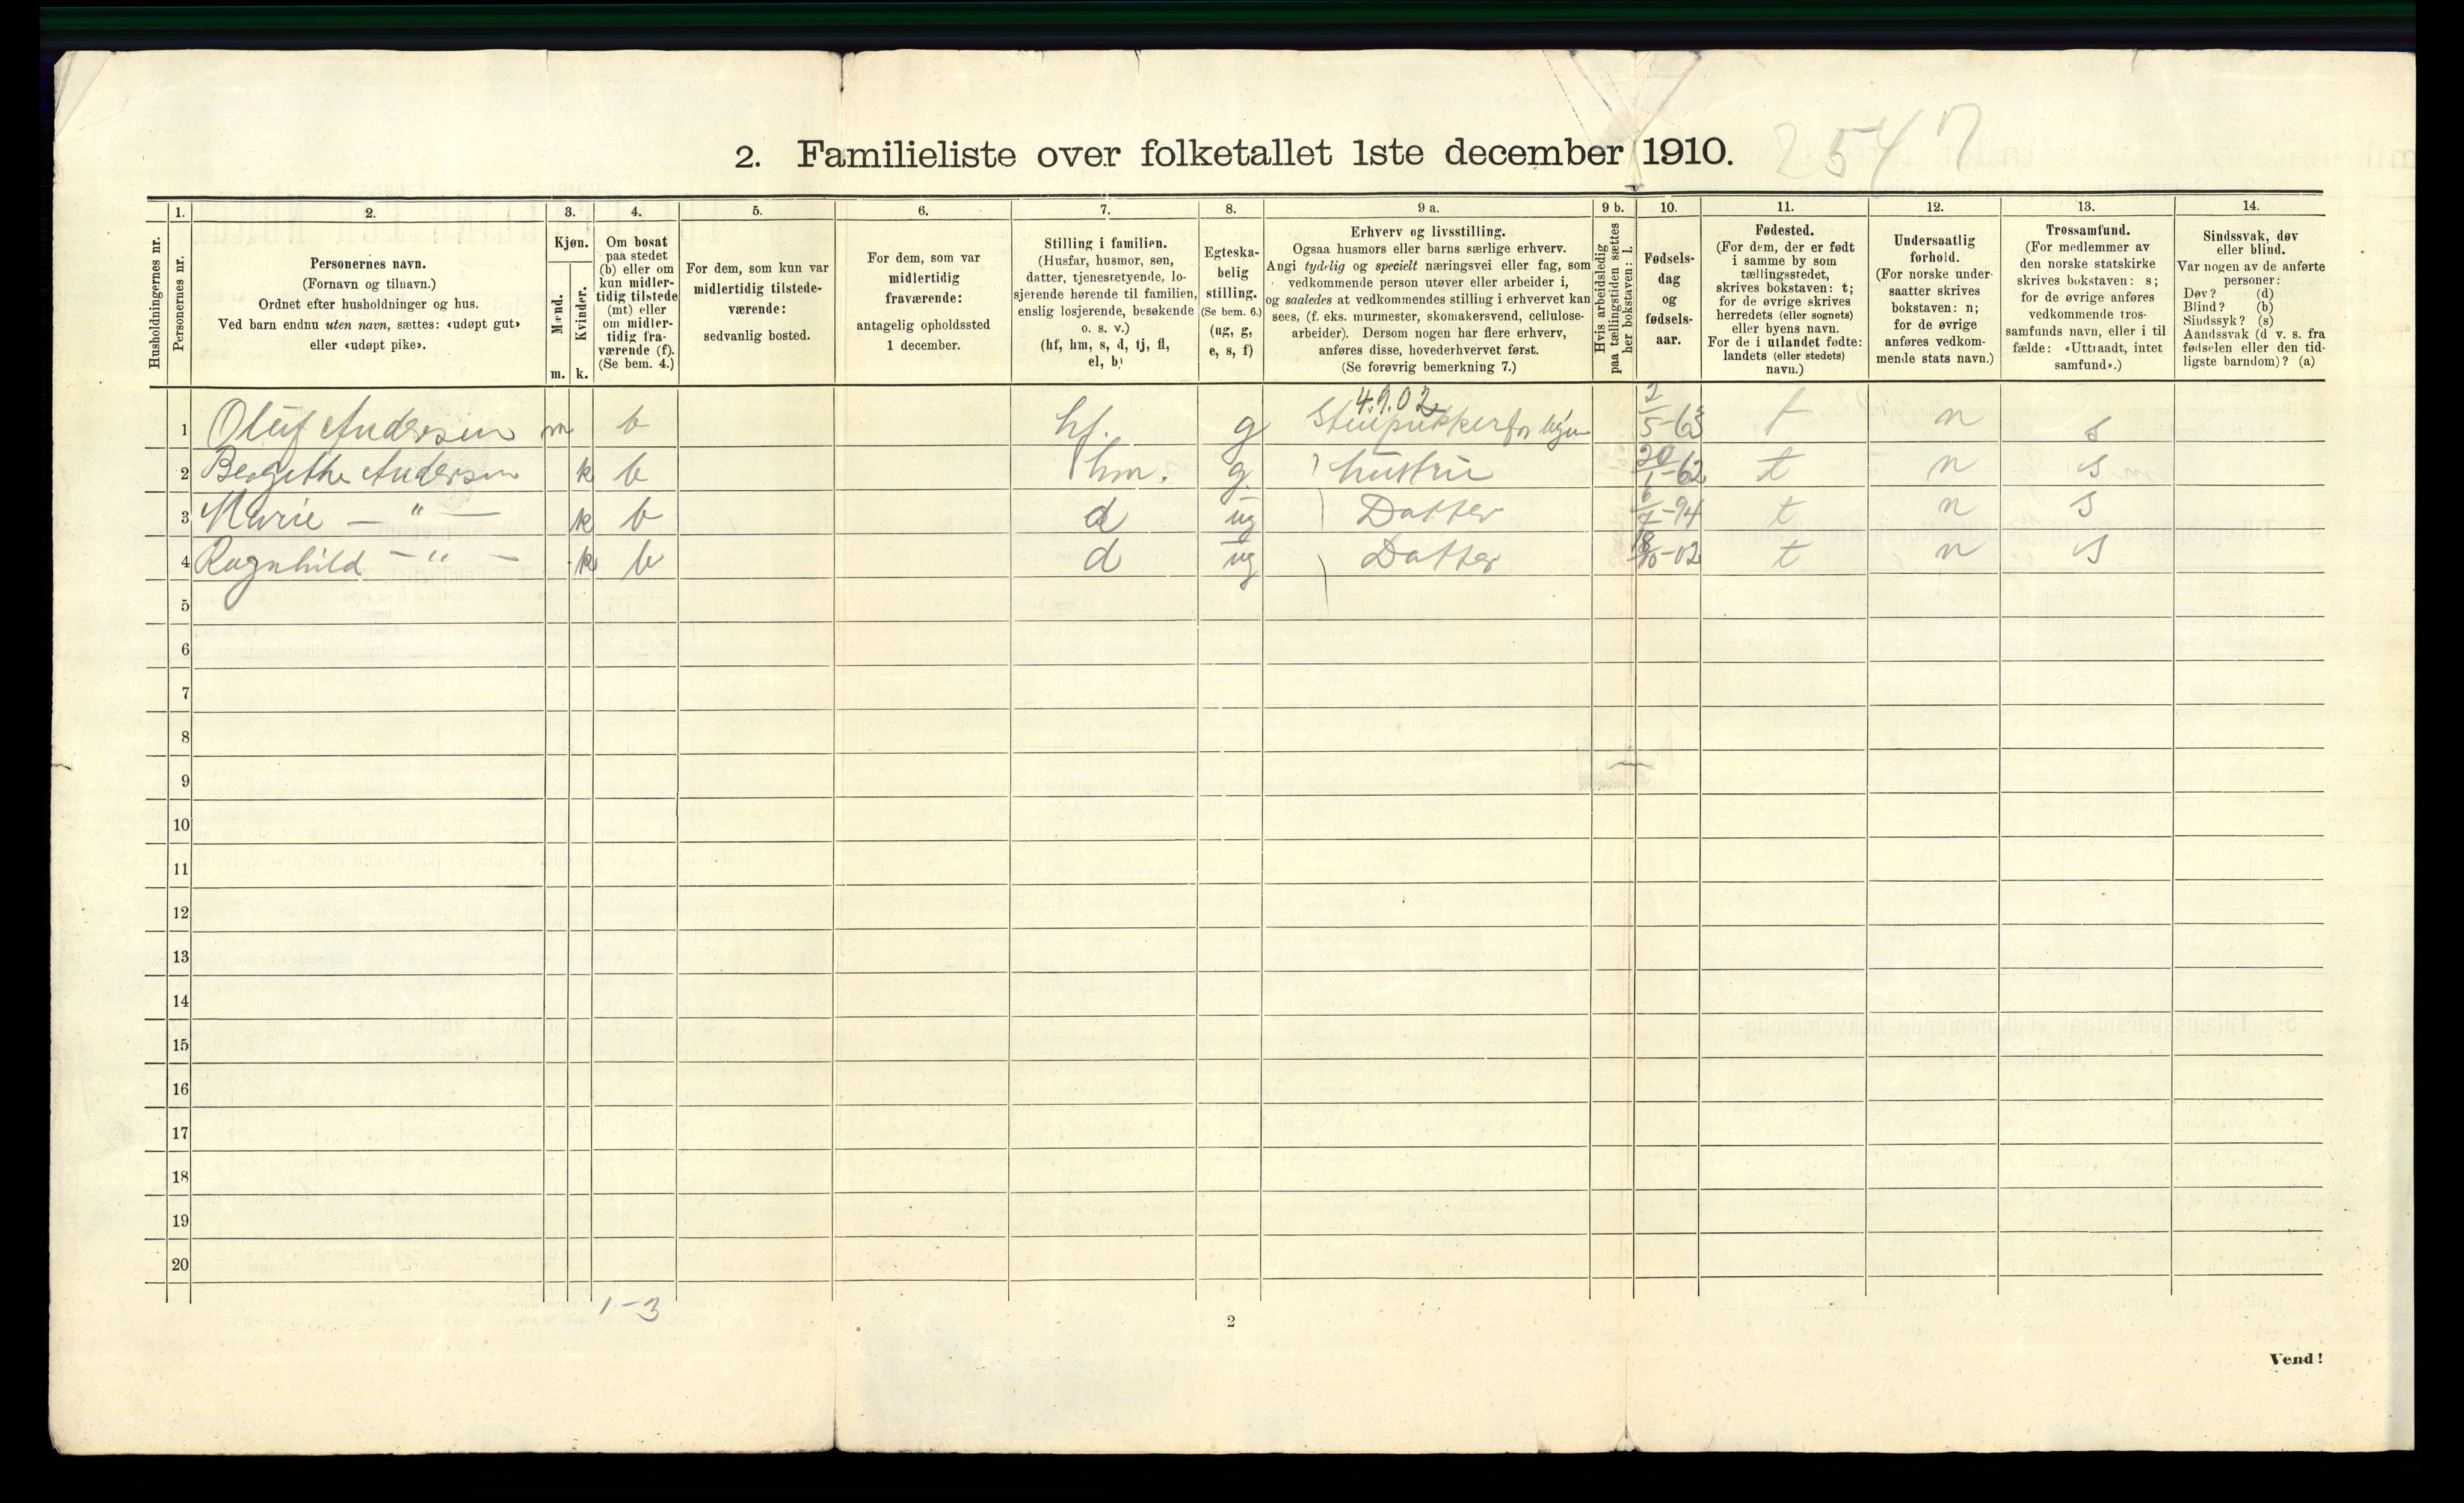 2547
2. Familieliste over folketallet 1ste december 1910.
Husholdningernes nr.
1.
Personernes nr.
2.
Personernes navn.
(Fornavn og tilnavn.)
Ordnet efter husholdninger og hus.
Ved barn endnu uten navn, sættes: «udøpt gut»
eller «udøpt pike».
3.
Kjøn.
Mænd.
Kvinder.
m. k.
4.
Om bosat
paa stedet
(b) eller om
kun midler-
tidig tilstede
(mt) eller
om midler-
tidig fra-
værende (f).
(Se bem. 4.)
5.
For dem, som kun var
midlertidig tilstede-
værende:
sedvanlig bosted.
6.
For dem, som var
midlertidig
fraværende:
antagelig opholdssted
1 december.
7.
Stilling i familien.
(Husfar, husmor, søn,
datter, tjenestetyende, lo-
sjerende hørende til familien,
enslig losjerende, besøkende
o. s. v.)
(hf, hm, s, d, tj, fl,
el, b)
8.
Egteska-
belig
stilling.
(Se bem. 6.)
(ug, g,
e, s, f)
9 a.
Erhverv og livsstilling.
Ogsaa husmors eller barns særlige erhverv.
Angi tydelig og specielt næringsvei eller fag, som
vedkommende person utøver eller arbeider i,
og saaledes at vedkommendes stilling i erhvervet kan
sees, (f. eks. murmester, skomakersvend, cellulose-
arbeider). Dersom nogen har flere erhverv,
anføres disse, hovederhvervet først.
(Se forøvrig bemerkning 7.)
9 b.
Hvis arbeidsledig
paa tællingstiden sættes
her bokstaven: l.
10.
Fødsels-
dag
og
fødsels-
aar.
11.
Fødested.
(For dem, der er født
i samme by som
tællingsstedet,
skrives bokstaven: t;
for de øvrige skrives
herredets (eller sognets)
eller byens navn.
For de i utlandet fødte:
landets (eller stedets)
navn.)
12.
Undersaatlig
forhold.
(For norske under-
saatter skrives
bokstaven: n;
for de øvrige
anføres vedkom-
mende stats navn.)
13.
Trossamfund.
(For medlemmer av
den norske statskirke
skrives bokstaven: s;
for de øvrige anføres
vedkommende tros-
samfunds navn, eller i til
fælde: «Uttraadt, intet
samfund».)
14.
Sindssvak, døv
eller blind.
Var nogen av de anførte
personer:
Døv? (d)
Blind? (b)
Sindssyk? (s)
Aandssvak (d v. s. fra
fødselen eller den tid-
ligste barndom)? (a)
4.9.02
1 Oluf Andersen m b hf. g Stenpukker for 2/5-63 t n s
2 Bergithe Andersen k b hm. g. hustru 20/1-62 t n s
3 Marie — " — k b d ug Datter 6/7-94 t n s
4 Ragnhild — " — k b d ug Datter 18/10-02 t n s
5
6
7
8
9
10
11
12
13
14
15
16
17
18
19
20
1-3
2
Vend!